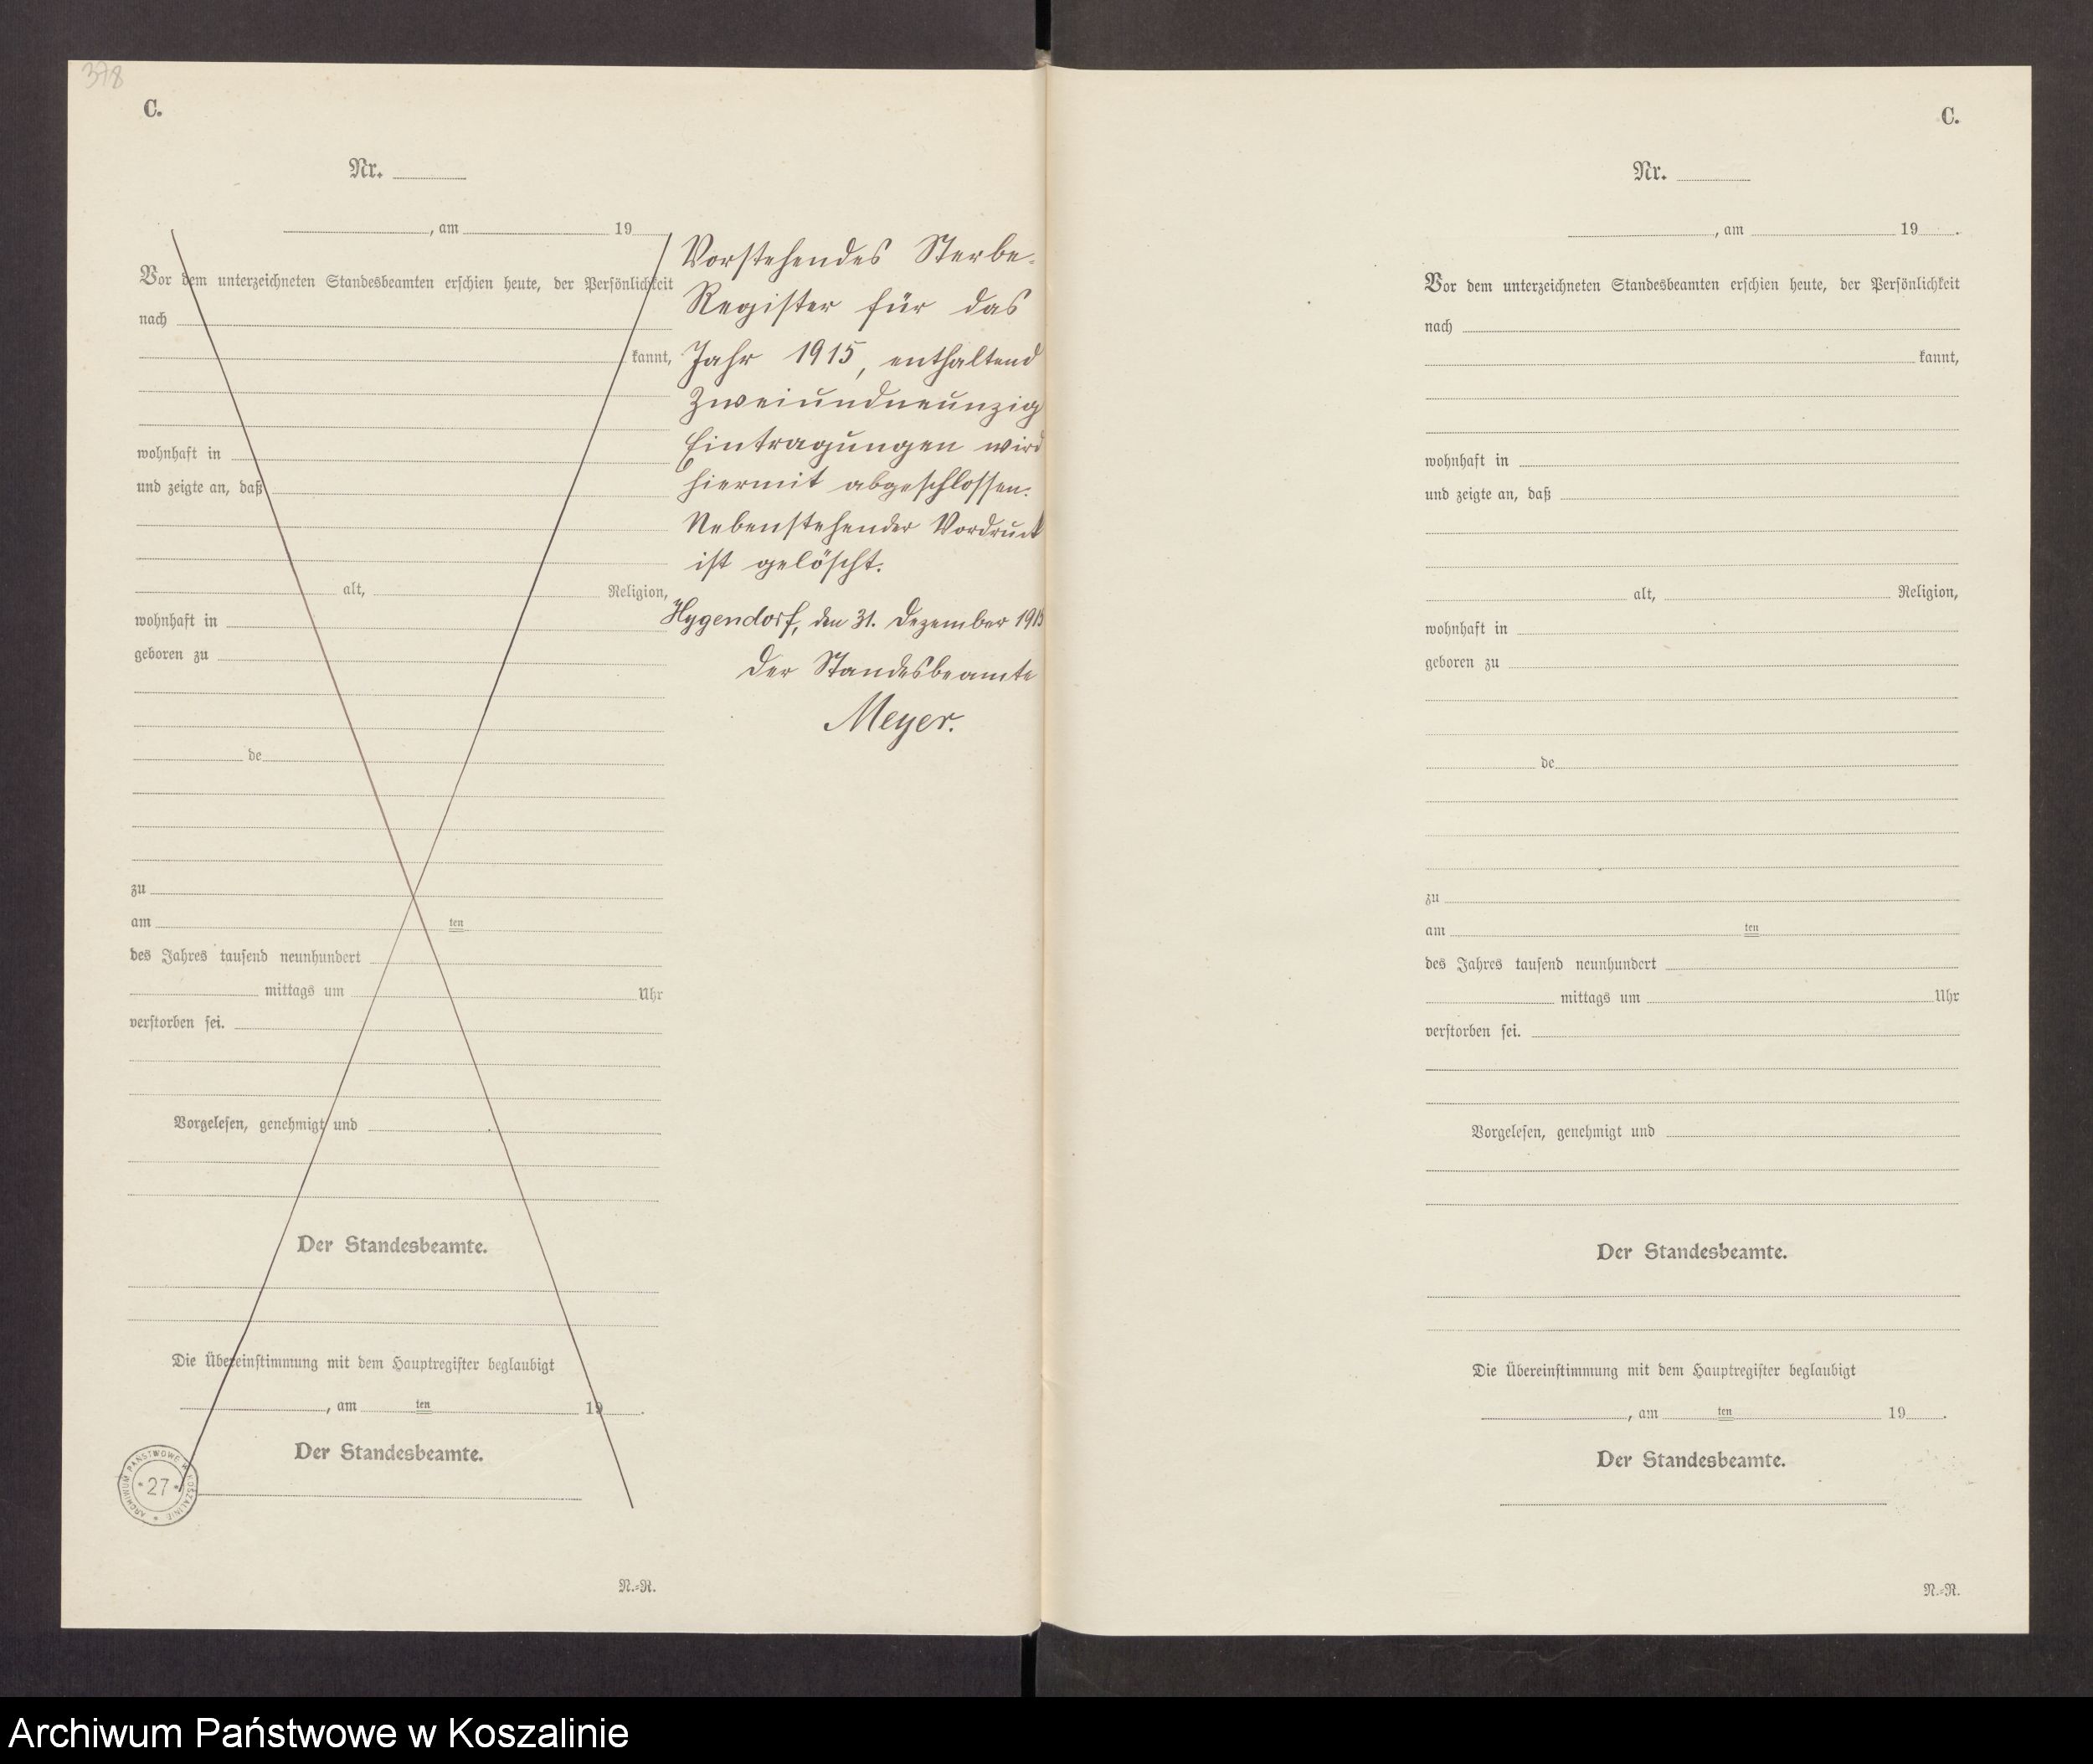 378
C.
Nr.
, am 19
Vor dem unterzeichneten Standesbeamten erschien heute, der Persönlichkeit
nach
kannt,
wohnhaft in
und zeigte an, daß
alt, Religion,
wohnhaft in
geboren zu
de
zu
am ten
des Jahres tausend neunhundert
mittags um Uhr
verstorben sei.
Vorgelesen, genehmigt und
Der Standesbeamte.
Die Übereinstimmung mit dem Hauptregister beglaubigt
, am ten 19 .
Der Standesbeamte.
ARCHIWUM PAŃSTWOWE W KOSZALINIE
* 27 *
N.-R.
Vorstehendes Sterbe-
Register für das
Jahr 1915, enthaltend
Zweiundneunzig
Eintragungen wird
hiermit abgeschlossen.
Nebenstehender Vordruck
ist gelöscht.
Hygendorf, den 31. Dezember 1915
Der Standesbeamte
Meyer.
C.
Nr.
, am 19 .
Vor dem unterzeichneten Standesbeamten erschien heute, der Persönlichkeit
nach
kannt,
wohnhaft in
und zeigte an, daß
alt, Religion,
wohnhaft in
geboren zu
de
zu
am ten
des Jahres tausend neunhundert
mittags um Uhr
verstorben sei.
Vorgelesen, genehmigt und
Der Standesbeamte.
Die Übereinstimmung mit dem Hauptregister beglaubigt
, am ten 19 .
Der Standesbeamte.
N.-R.
Archiwum Państwowe w Koszalinie